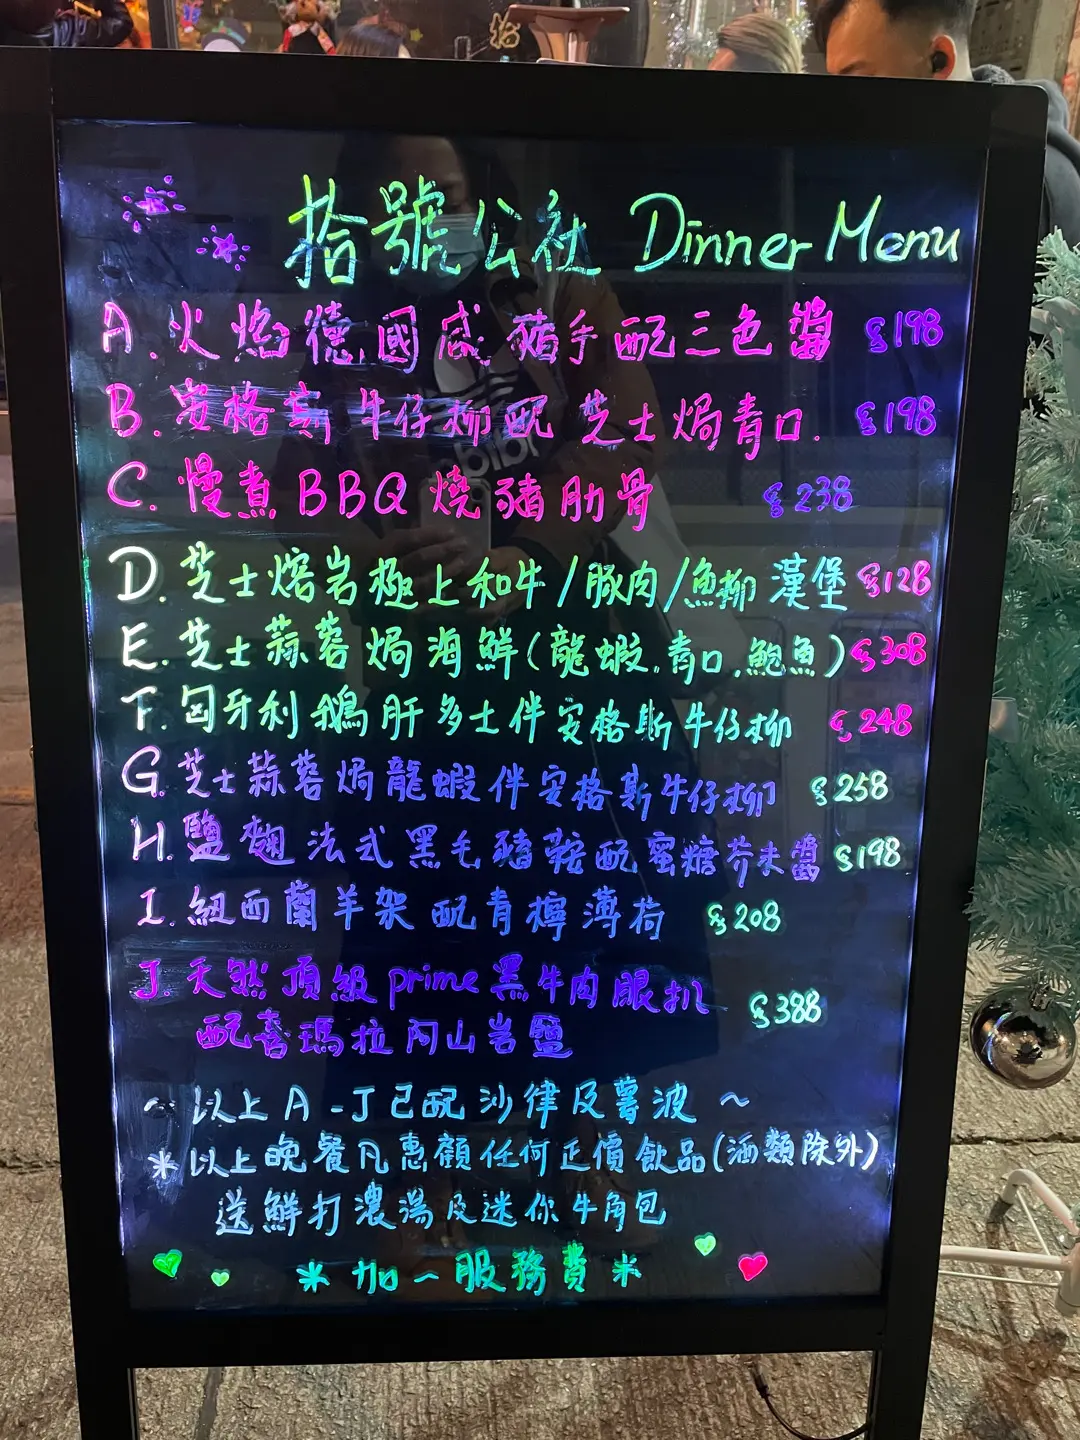 拾
拾號公社 Dinner Menu
A. 火焰德國咸豬手配三色醬 $198
B. 安格斯牛仔柳配芝士焗青口. $198
C. 慢煮BBQ燒豬肋骨 $238
D. 芝士熔岩極上和牛/豚肉/魚柳漢堡 $128
E. 芝士蒜蓉焗海鮮(龍蝦.青口.鮑魚) $308
F. 匈牙利鵝肝多士伴安格斯牛仔柳 $248
G. 芝士蒜蓉焗龍蝦伴安格斯牛仔柳 $258
H. 鹽麴法式黑毛豬鞍配蜜糖芥末醬 $198
I. 紐西蘭羊架配青檸薄荷 $208
J. 天然頂級prime黑牛肉眼扒 $388
配喜瑪拉阿山岩鹽
~以上A-J已配沙律及薯波~
*以上晚餐凡惠顧任何正價飲品(酒類除外)
送鮮打濃湯及迷你牛角包
*加一服務費*